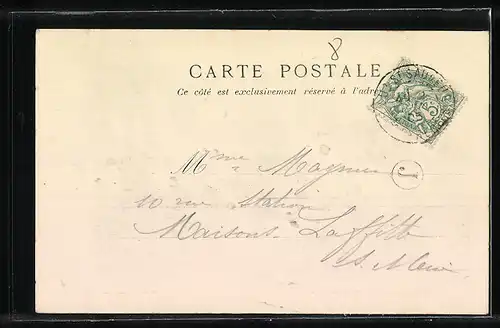 8
CARTE POSTALE
Ce côté est exclusivement réservé à l'adre
5
J
Mme Magnier
10 rue Station
Maisons-Laffitte